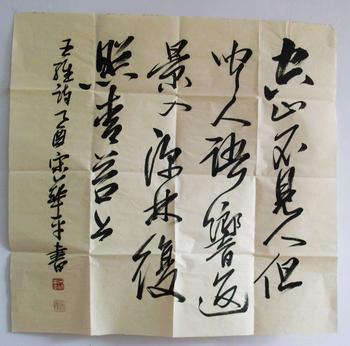 空山不見人但
聞人語響返
景入深林復
照青苔上
王維詩乙酉宋華平書